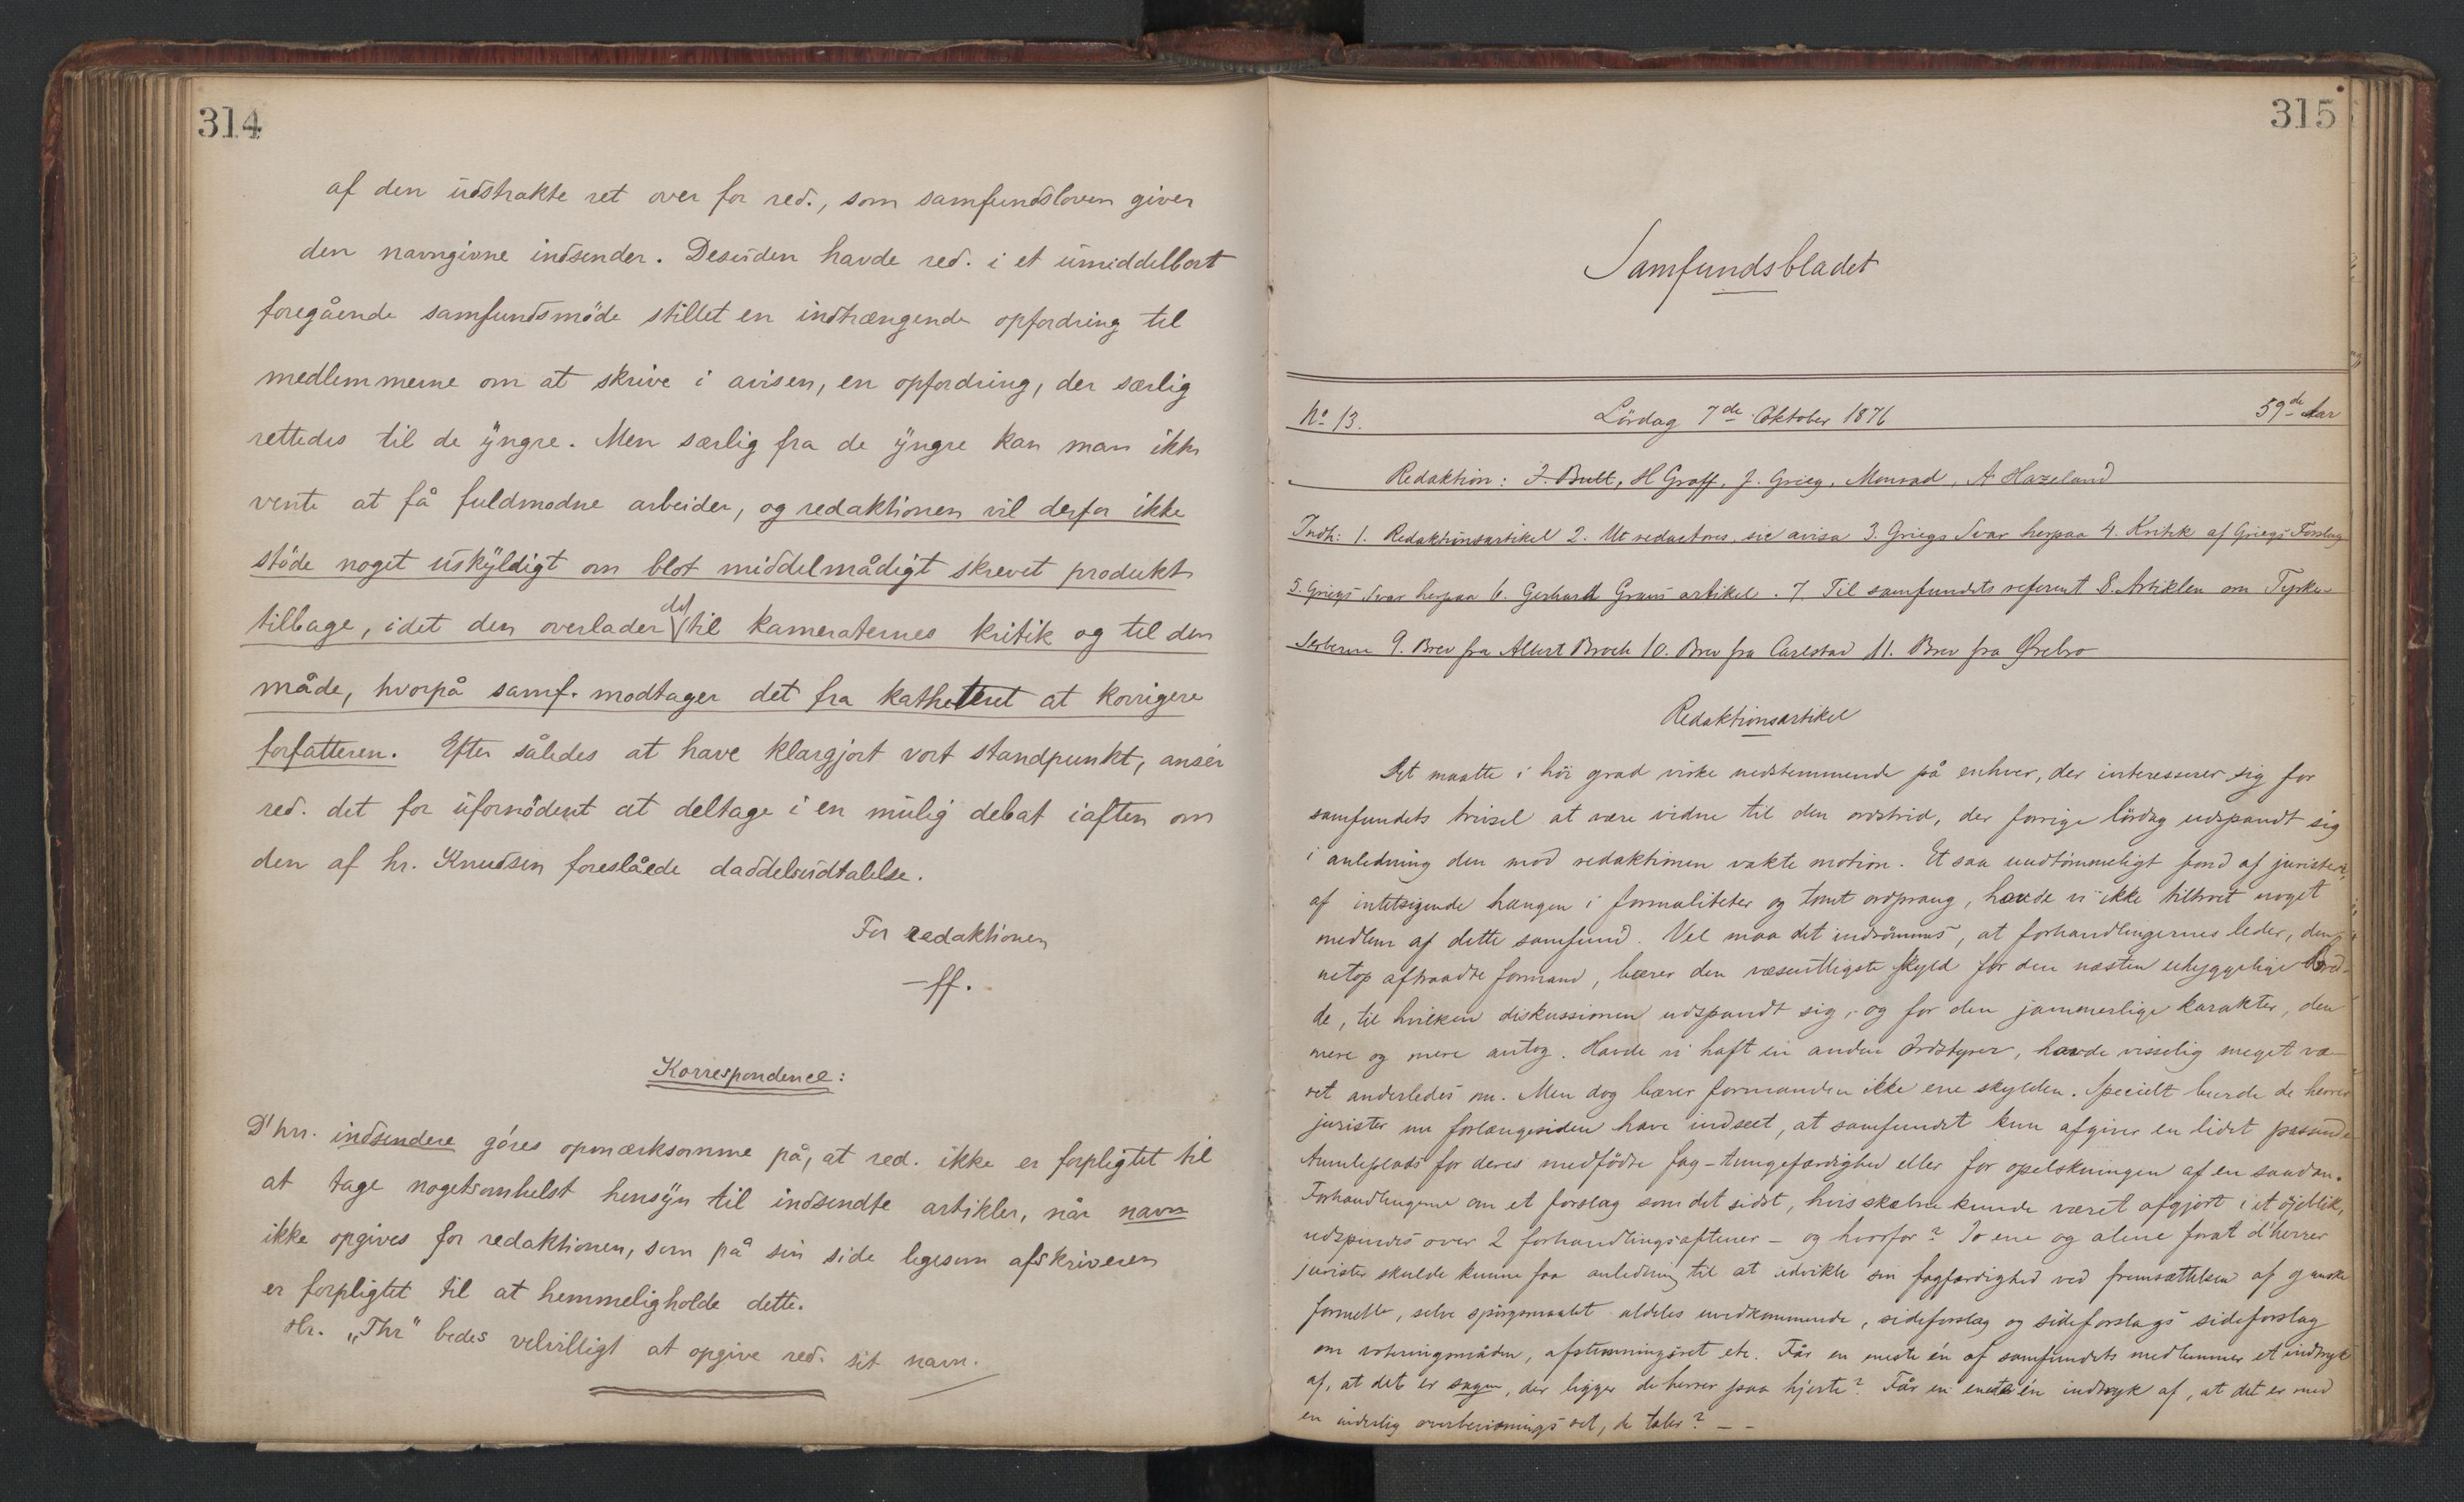 314
af den udstrakte ret over for red., som samfundsloven giver
den navngivne indsender. Desuden havde red. i et umiddelbart
foregående samfundsmöde stillet en indtrængende opfordring til
medlemmerne om at skrive i avisen, en opfordring, der særlig
rettedes til de yngre. Men særlig fra de yngre kan man ikke
vente at få fuldmodne arbeider, og redaktionen vil derfor ikke
stöde noget uskyldigt om blot middelmådigt skrevet produkt
tilbage, idet den overlader det til kameraternes kritik og til den
måde, hvorpå samf. modtager det fra katheteret at korrigere
forfatteren. Efter således at have klargjort vort standpunkt, anser
red. det for ufornödent at deltage i en mulig debat iaften om
den af hr. Knudsen foreslåede daddelsudtalelse.
For redaktionen
-ff.
Korrespondence:
D'hrr. indsendere göres opmærksomme på, at red. ikke er forpligtet til
at tage nogetsomhelst hensyn til indsendte artikler, når navn
ikke opgives for redaktionen, som på sin side ligesom afskriveren
er forpligtet til at hemmeligholde dette.
Hr. „Thr" bedes velvilligt at opgive red. sit navn.
315
Samfundsbladet
No 13. Lördag 7de Oktober 1876 59de Aar
Redaktion: F. Bull, H Graff, J. Grieg, Monrad, A Hazeland
Indh: 1. Redaktionsartikel 2. Ut redactores, sic avisa 3. Griegs Svar herpaa 4. Kritik af Griegs Forslag
5. Griegs Svar herpaa 6. Gerhard Grans artikel. 7. Til samfundets referent 8. Artiklen om Tyrker
Serberne 9. Brev fra Albert Broch 10. Brev fra Carlstad 11. Brev fra Ørebro
Redaktionsartikel
Det maatte i höi grad virke nedstemmende på enhver, der interesserer sig for
samfundets trivsel at være vidne til den ordstrid, der forrige lördag udspandt sig
i anledning den mod redaktionen vakte motion. Et saa uudtömmeligt fond af juristeri,
af intetsigende hængen i formaliteter og tomt ordprang, havde vi ikke tiltroet noget
medlem af dette samfund. Vel maa det indrömmes, at forhandlingernes leder, den
netop aftraadte formand, bærer den væsentligste skyld for den næsten uhyggelige bred-
de, til hvilken diskussionen udspandt sig, og for den jammerlige karakter, den
mere og mere antog. Havde vi haft en anden Ordstyrer, havde visselig meget væ-
ret anderledes nu. Men dog bærer formanden ikke ene skylden. Specielt burde de herrer
jurister nu forlængesiden have indseet, at samfundet kun afgiver en lidet passende
tumleplads for deres medfödte fag-tungefærdighed eller for opelskningen af en saadan.
Forhandlingerne om et forslag som det sidst, hvis skæbne kunde været afgjort i et öjeblik,
udspindes over 2 forhandlingsaftener - og hvorfor? Jo ene og alene forat d'herrer
jurister skulde kunne faa anledning til at udvikle sin fagfærdighed ved fremsættelsen af ganske
formelle, selve spörgsmaalet aldeles uvedkommende, sideforslag og sideforslags sideforslag
om voteringsmåden, afstemningsret etc. Får en eneste én af samfundets medlemmer et indtryk
af, at det er sagen, der ligger de herrer paa hjerte? Får en eneste én indtryk af, at det er med
en inderlig overbevisnings ret, de taler? - -